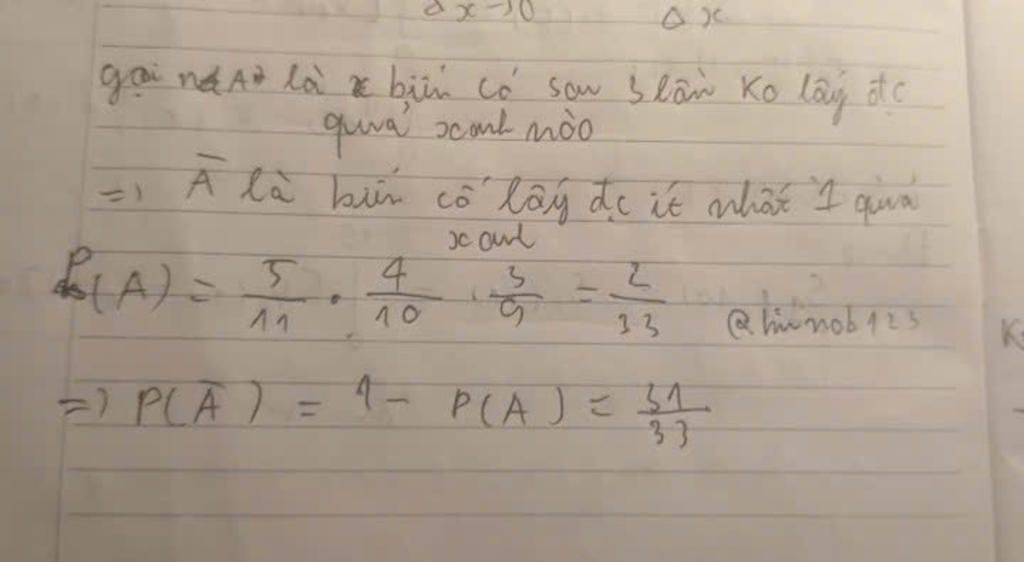 Δx→0 Δx
gọi A là biến cố sau 3 lần Ko lấy đc
quả xanh nào
=) Ā là biến cố lấy đc ít nhất 1 quả
xanh
P(A) = 5/11 . 4/10 . 3/9 = 2/33 @hivnob123
=) P(Ā) = 1 - P(A) = 31/33